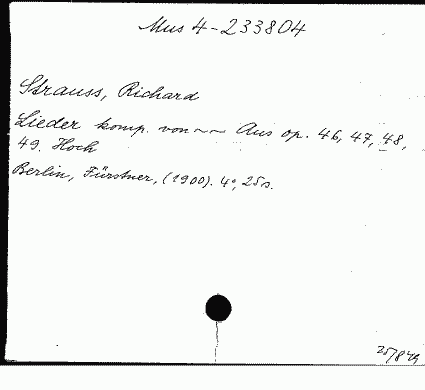 Mus 4-233804
Strauss, Richard
Lieder komp. von ~~ Aus op. 46, 47, 48,
49. Hoch
Berlin, Fürstner, (1900). 4°, 25 s.